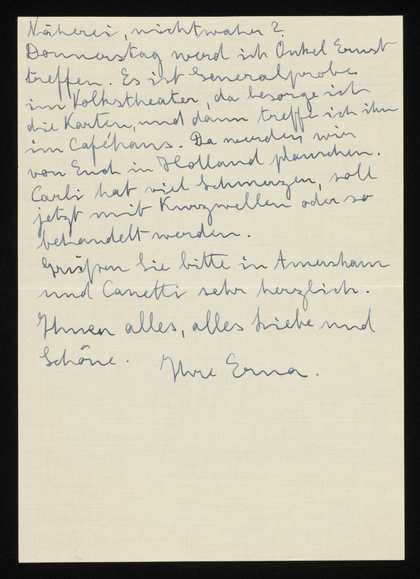 Näherei, nichtwahr?
Donnerstag werd ich Onkel Ernst
treffen. Es ist Generalprobe
im Volkstheater, da besorge ich
die Karten, und dann treffe ich ihn
im Caféhaus. Da werden wir
von Euch in Holland plauschen.
Carli hat viel Schmerzen, soll
jetzt mit Kurzwellen oder so
behandelt werden.
Grüßen Sie bitte in Amersham
und Canetti sehr herzlich.
Ihnen alles, alles Liebe und
Schöne.
Ihre Erna.